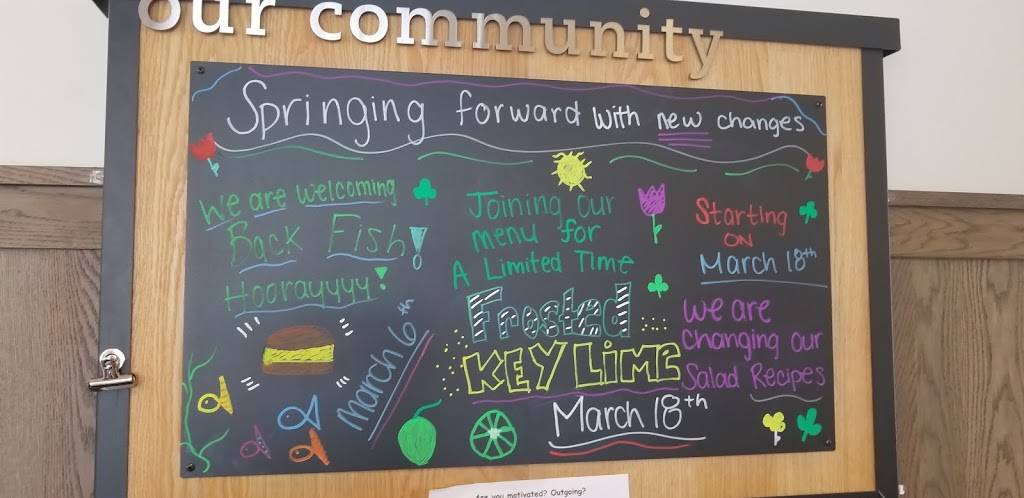 our community
Springing forward with new changes
We are welcoming
Back Fish!
Hoorayyyy!
March 6th
Joining our
menu for
A Limited Time
Frosted
KEY LIME
March 18th
Starting
ON
March 18th
We are
changing our
Salad Recipes
Are you motivated? Outgoing?